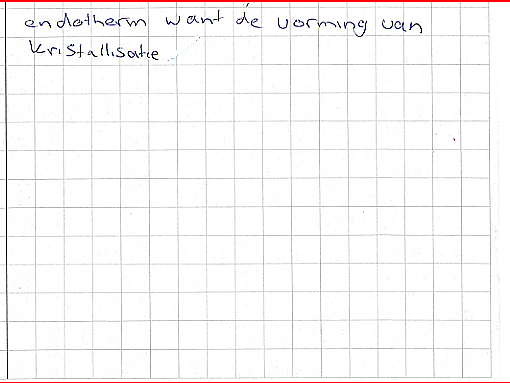 endotherm want de vorming van
kristallisatie